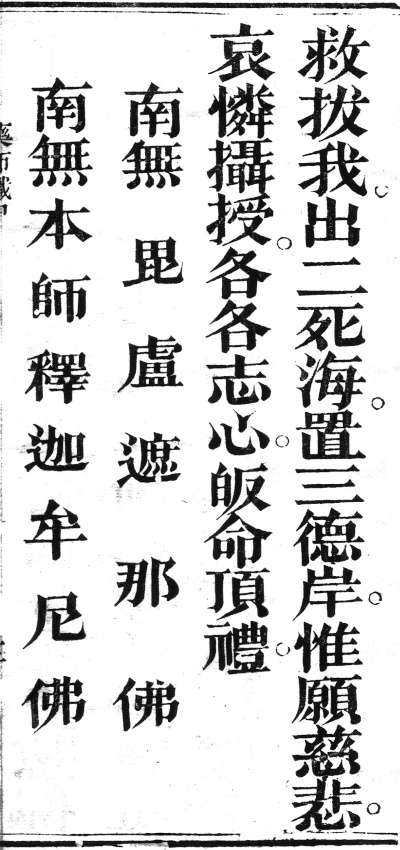 救拔我。出二死海。置三德岸。惟願慈悲。
哀憐攝授。各各志心。皈命頂禮。
南無毘盧遮那佛
南無本師釋迦牟尼佛